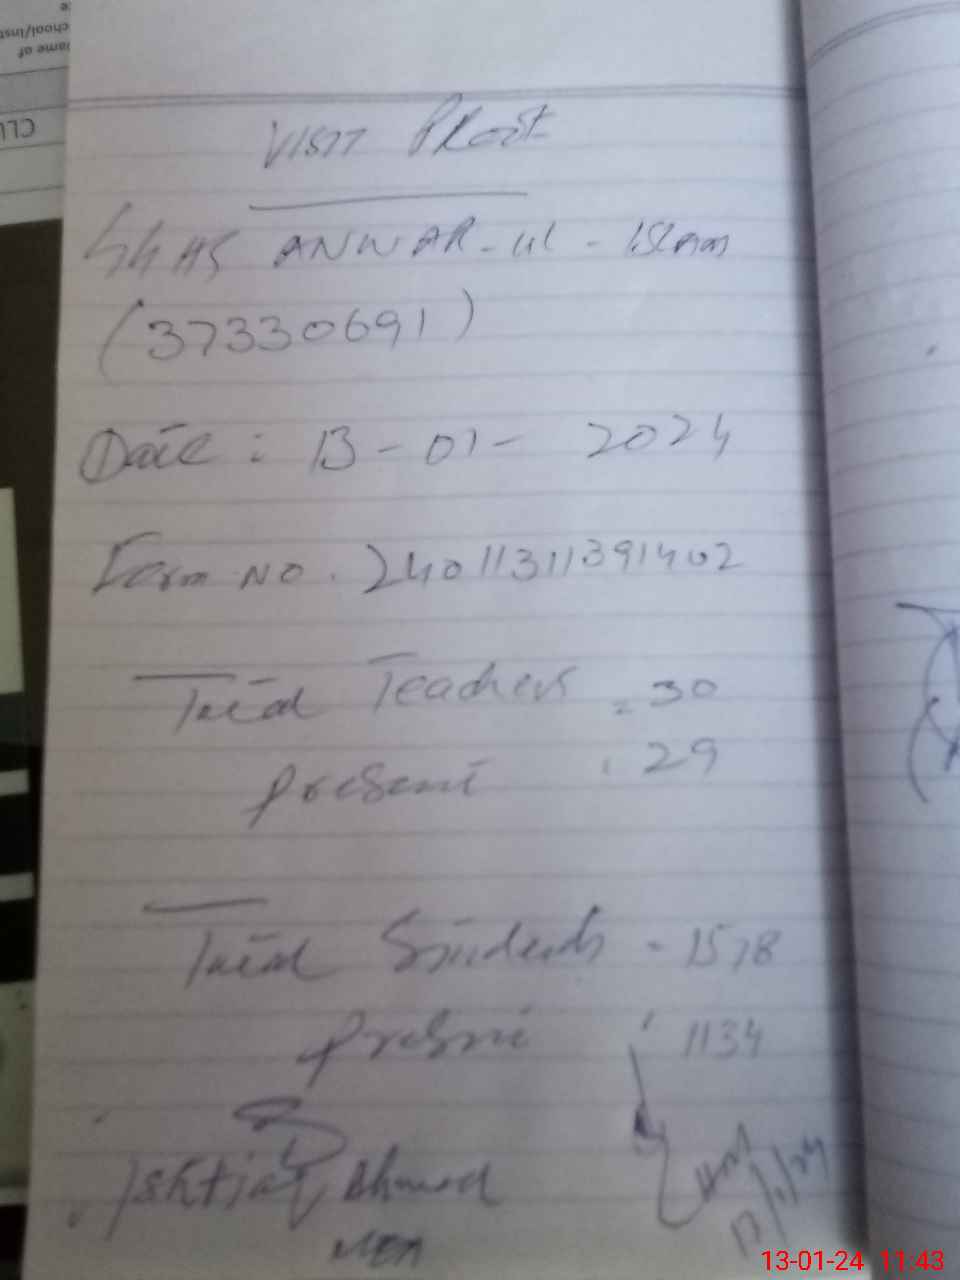 VISIT PROOF
GGHS ANWAR-ul-Islam
(37330691)
Date : 13-01-2024
Form NO. 24011311391402
Total Teachers = 30
Present : 29
Total Students - 1578
Present : 1134
Ishtiaq Ahmed
MEA
HM
13/1/24
13-01-24 11:43